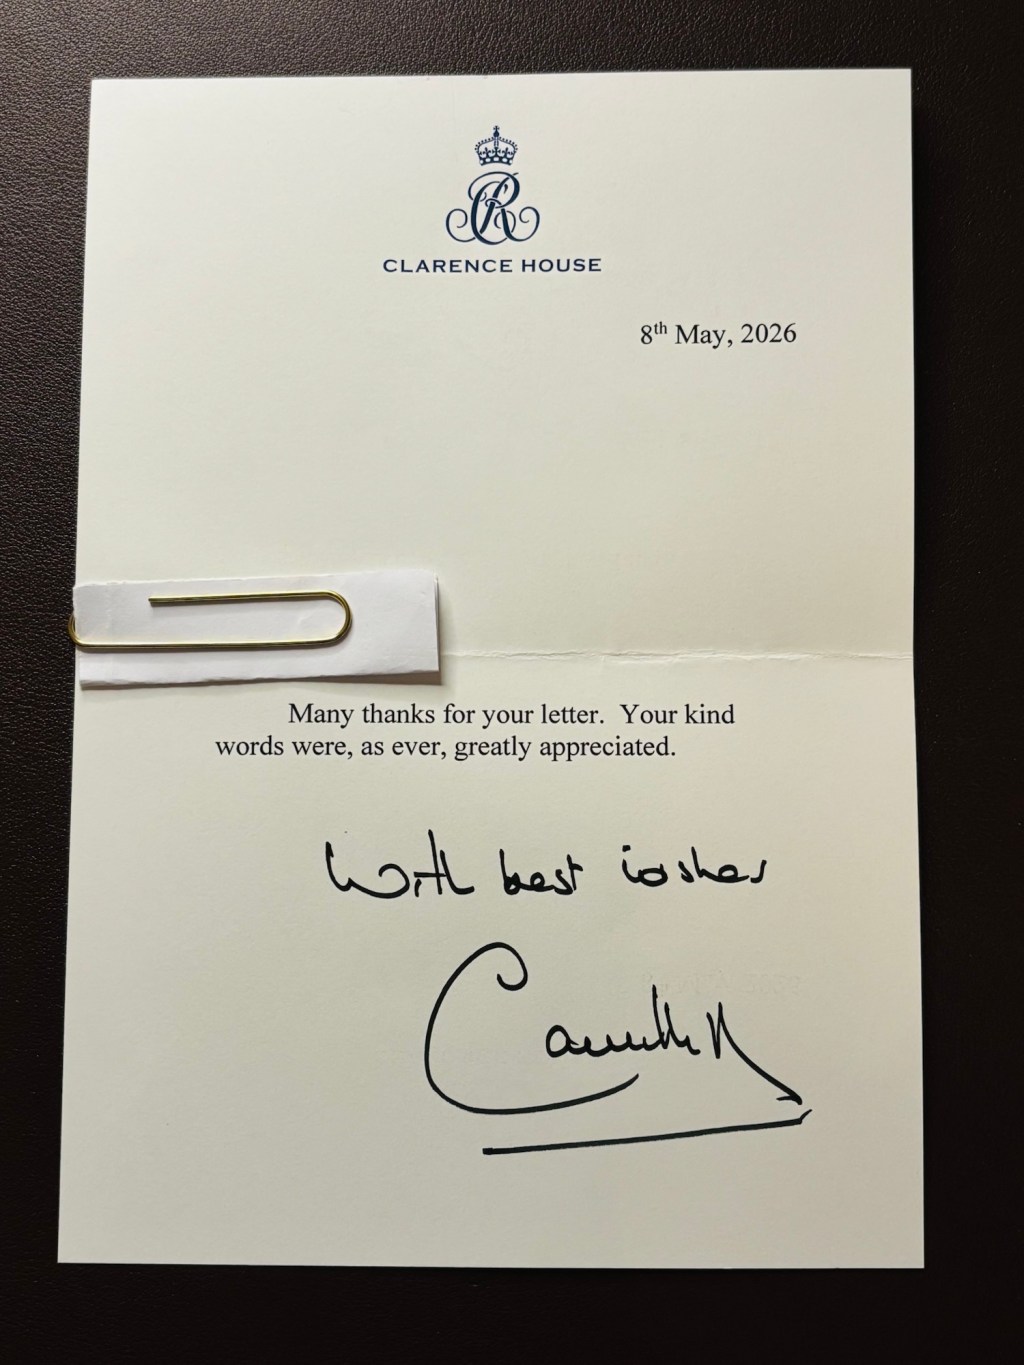 CR
CLARENCE HOUSE
8th May, 2026
Many thanks for your letter. Your kind
words were, as ever, greatly appreciated.
With best wishes
Camilla R